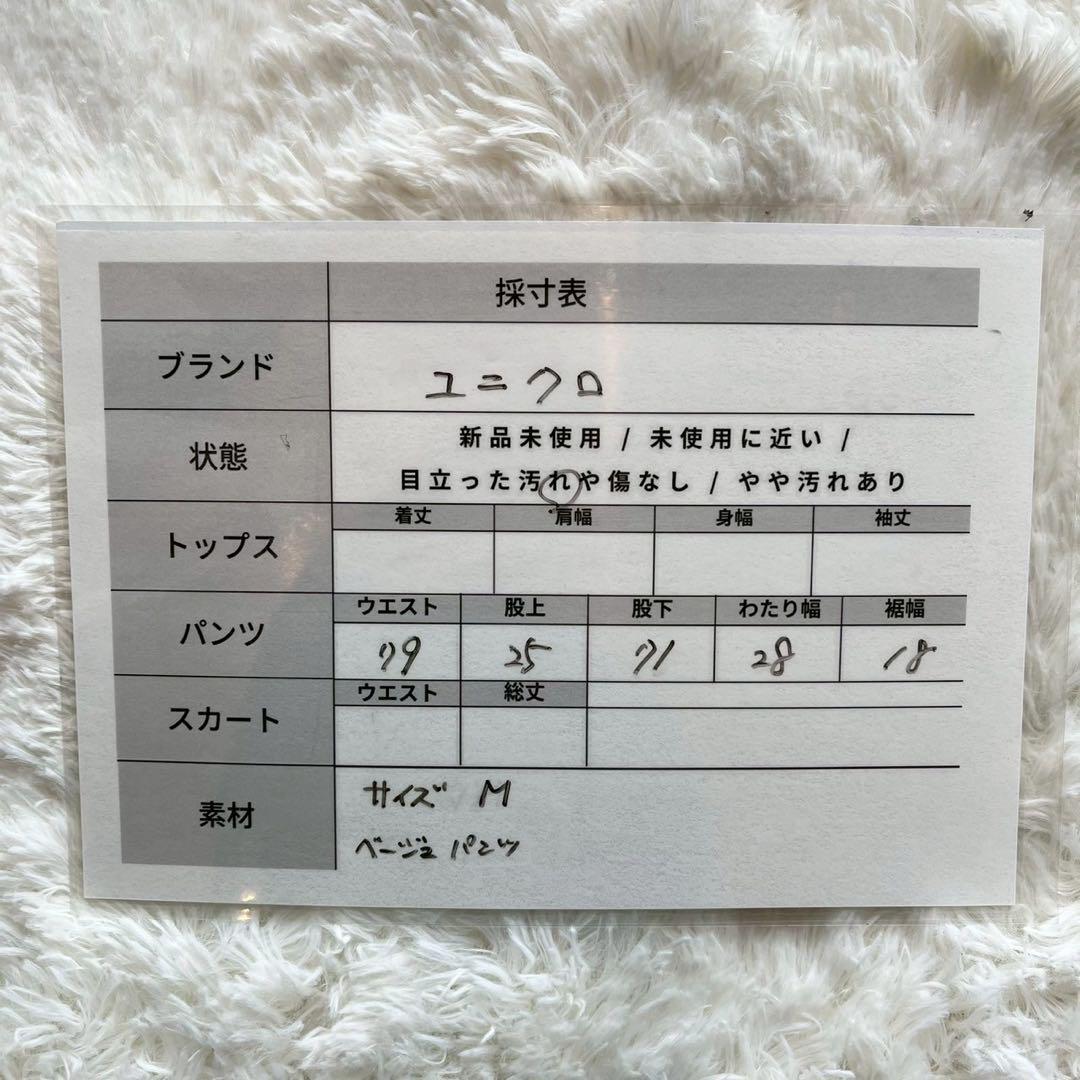 採寸表
ブランド ユニクロ
状態 新品未使用 / 未使用に近い /
目立った汚れや傷なし / やや汚れあり
トップス 着丈 肩幅 身幅 袖丈
パンツ ウエスト 股上 股下 わたり幅 裾幅
79 25 71 28 18
スカート ウエスト 総丈
素材 サイズ M
ベージュ パンツ